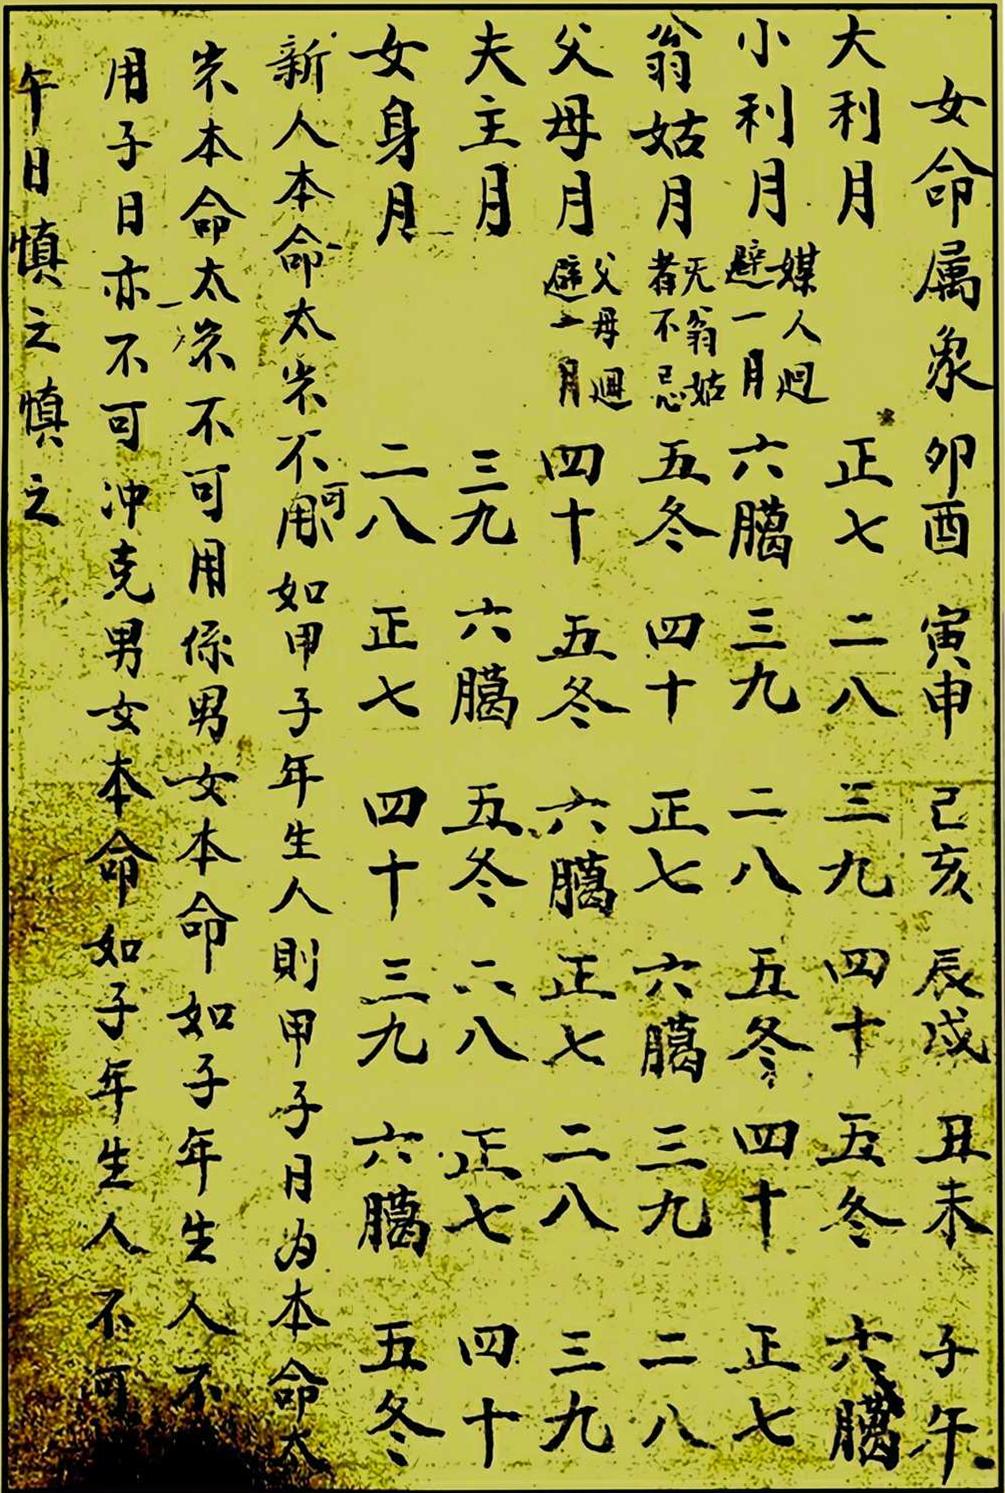 女命属象 卯酉 寅申 己亥 辰戌 丑未 子午
大利月 正七 二八 三九 四十 五冬 六臈
小利月 媒人廻避一月 六臈 三九 二八 五冬 四十 正七
翁姑月 无翁姑者不忌 五冬 四十 正七 六臈 三九 二八
父母月 父母廻避一月 四十 五冬 六臈 正七 二八 三九
夫主月 三九 六臈 五冬 二八 正七 四十
女身月 二八 正七 四十 三九 六臈 五冬
新人本命太岁不可用如甲子年生人則甲子月为本命太
岁本命太岁不可用係男女本命如子年生人不
用子日亦不可冲克男女本命如子年生人不可
午日慎之慎之